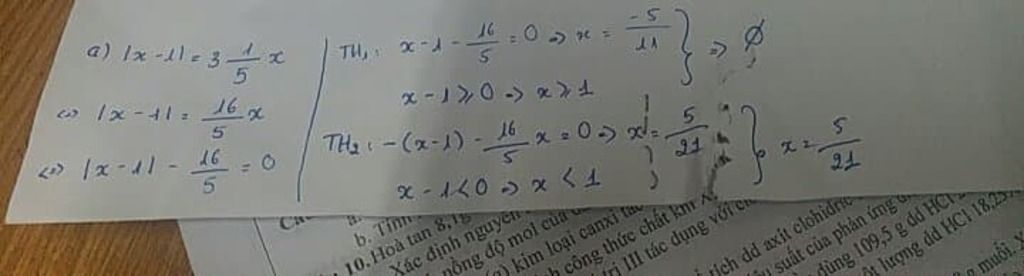 a) |x - 1| = 3 1/5 x
<=> |x - 1| = 16/5 x
<=> |x - 1| - 16/5 = 0
TH1: x - 1 - 16/5 = 0 => x = -5/11 } => ∅
x - 1 ⩾ 0 => x ⩾ 1
TH2: -(x - 1) - 16/5 x = 0 => x = 5/21 } x = 5/21
x - 1 < 0 => x < 1
b. Tính
10. Hoà tan 8,1g
Xác định nguyên
nồng độ mol của
kim loại canxi
công thức chất
III tác dụng với
tích dd axit clohidric
suất của phản ứng
dùng 109,5 g dd HCl
lượng dd HCl 18,25
muối.